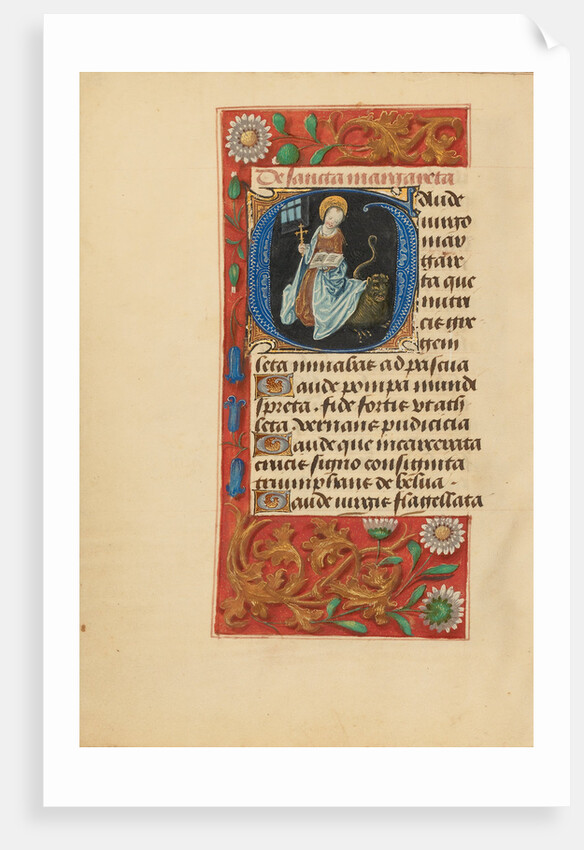 De sancta margareta
Aude
uirgo
mar
gare
ta que
nutri
cis gre
gem
leta minabas ad pascua
Gaude pompa mundi
spreta. fide fortis ut ath
leta vernans pudicicia
Gaude que incarcerata
crucis signo consignita
triumphans de belua.
Gaude uirgo flagellata